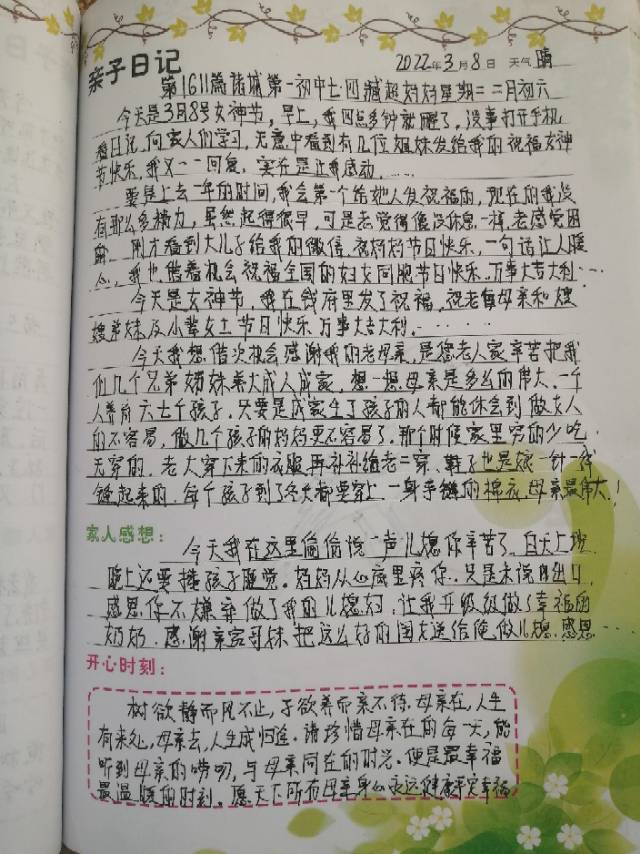 亲子日记
2022年3月8日 天气 晴
第1611篇诸城第一初中七四臧超妈妈星期二二月初六
今天是3月8号女神节，早上，我四点多钟就醒了，没事打开手机
看日记，向家人们学习，无意中看到有几位姐妹发给我的祝福女神
节快乐，我又一一回复，实在是让我感动......
要是上去一年的时间，我会第一个给她人发祝福的，现在的我没
有那么多精力，虽然起得很早，可是老觉得像没休息一样，老感觉困
刚才看到大儿子给我的微信，祝妈妈节日快乐，一句话让人暖
心，我也借着机会祝福全国的妇女同胞节日快乐，万事大吉大利...
今天是女神节，我在钱府里发了祝福，祝老每母亲和嫂
嫂弟妹及小辈女士节日快乐万事大吉大利......
今天我想借次机会感谢我的老母亲，是您老人家辛苦把我
们几个兄弟姊妹养大成人成家，想一想母亲是多么的伟大，一个
人养育六七个孩子，只要是成家生了孩子的人都能体会到做女人
的不容易，做几个孩子的妈妈更不容易了，那个时候家里穷的少吃
无穿的，老大穿下来的衣服再补补给老二穿、鞋子也是娘一针一线
缝起来的，每个孩子到了冬天都要穿上一身手缝的棉衣，母亲最伟大！
家人感想：
今天我在这里偷偷说一声儿媳你辛苦了，白天上班
晚上还要搂孩子睡觉，妈妈从心底里疼你，只是未说出口，
感恩你不嫌弃做了我的儿媳妇，让我升级做了幸福的
奶奶，感谢亲家哥妹把这么好的闺女送给俺做儿媳，感恩...
开心时刻：
树欲静而风不止，子欲养而亲不待，母亲在，人生
有来处，母亲去，人生成归途。请珍惜母亲在的每一天，能
听到母亲的唠叨，与母亲同在的时光，便是最幸福
最温暖的时刻，愿天下所有母亲身心永远健康平安幸福